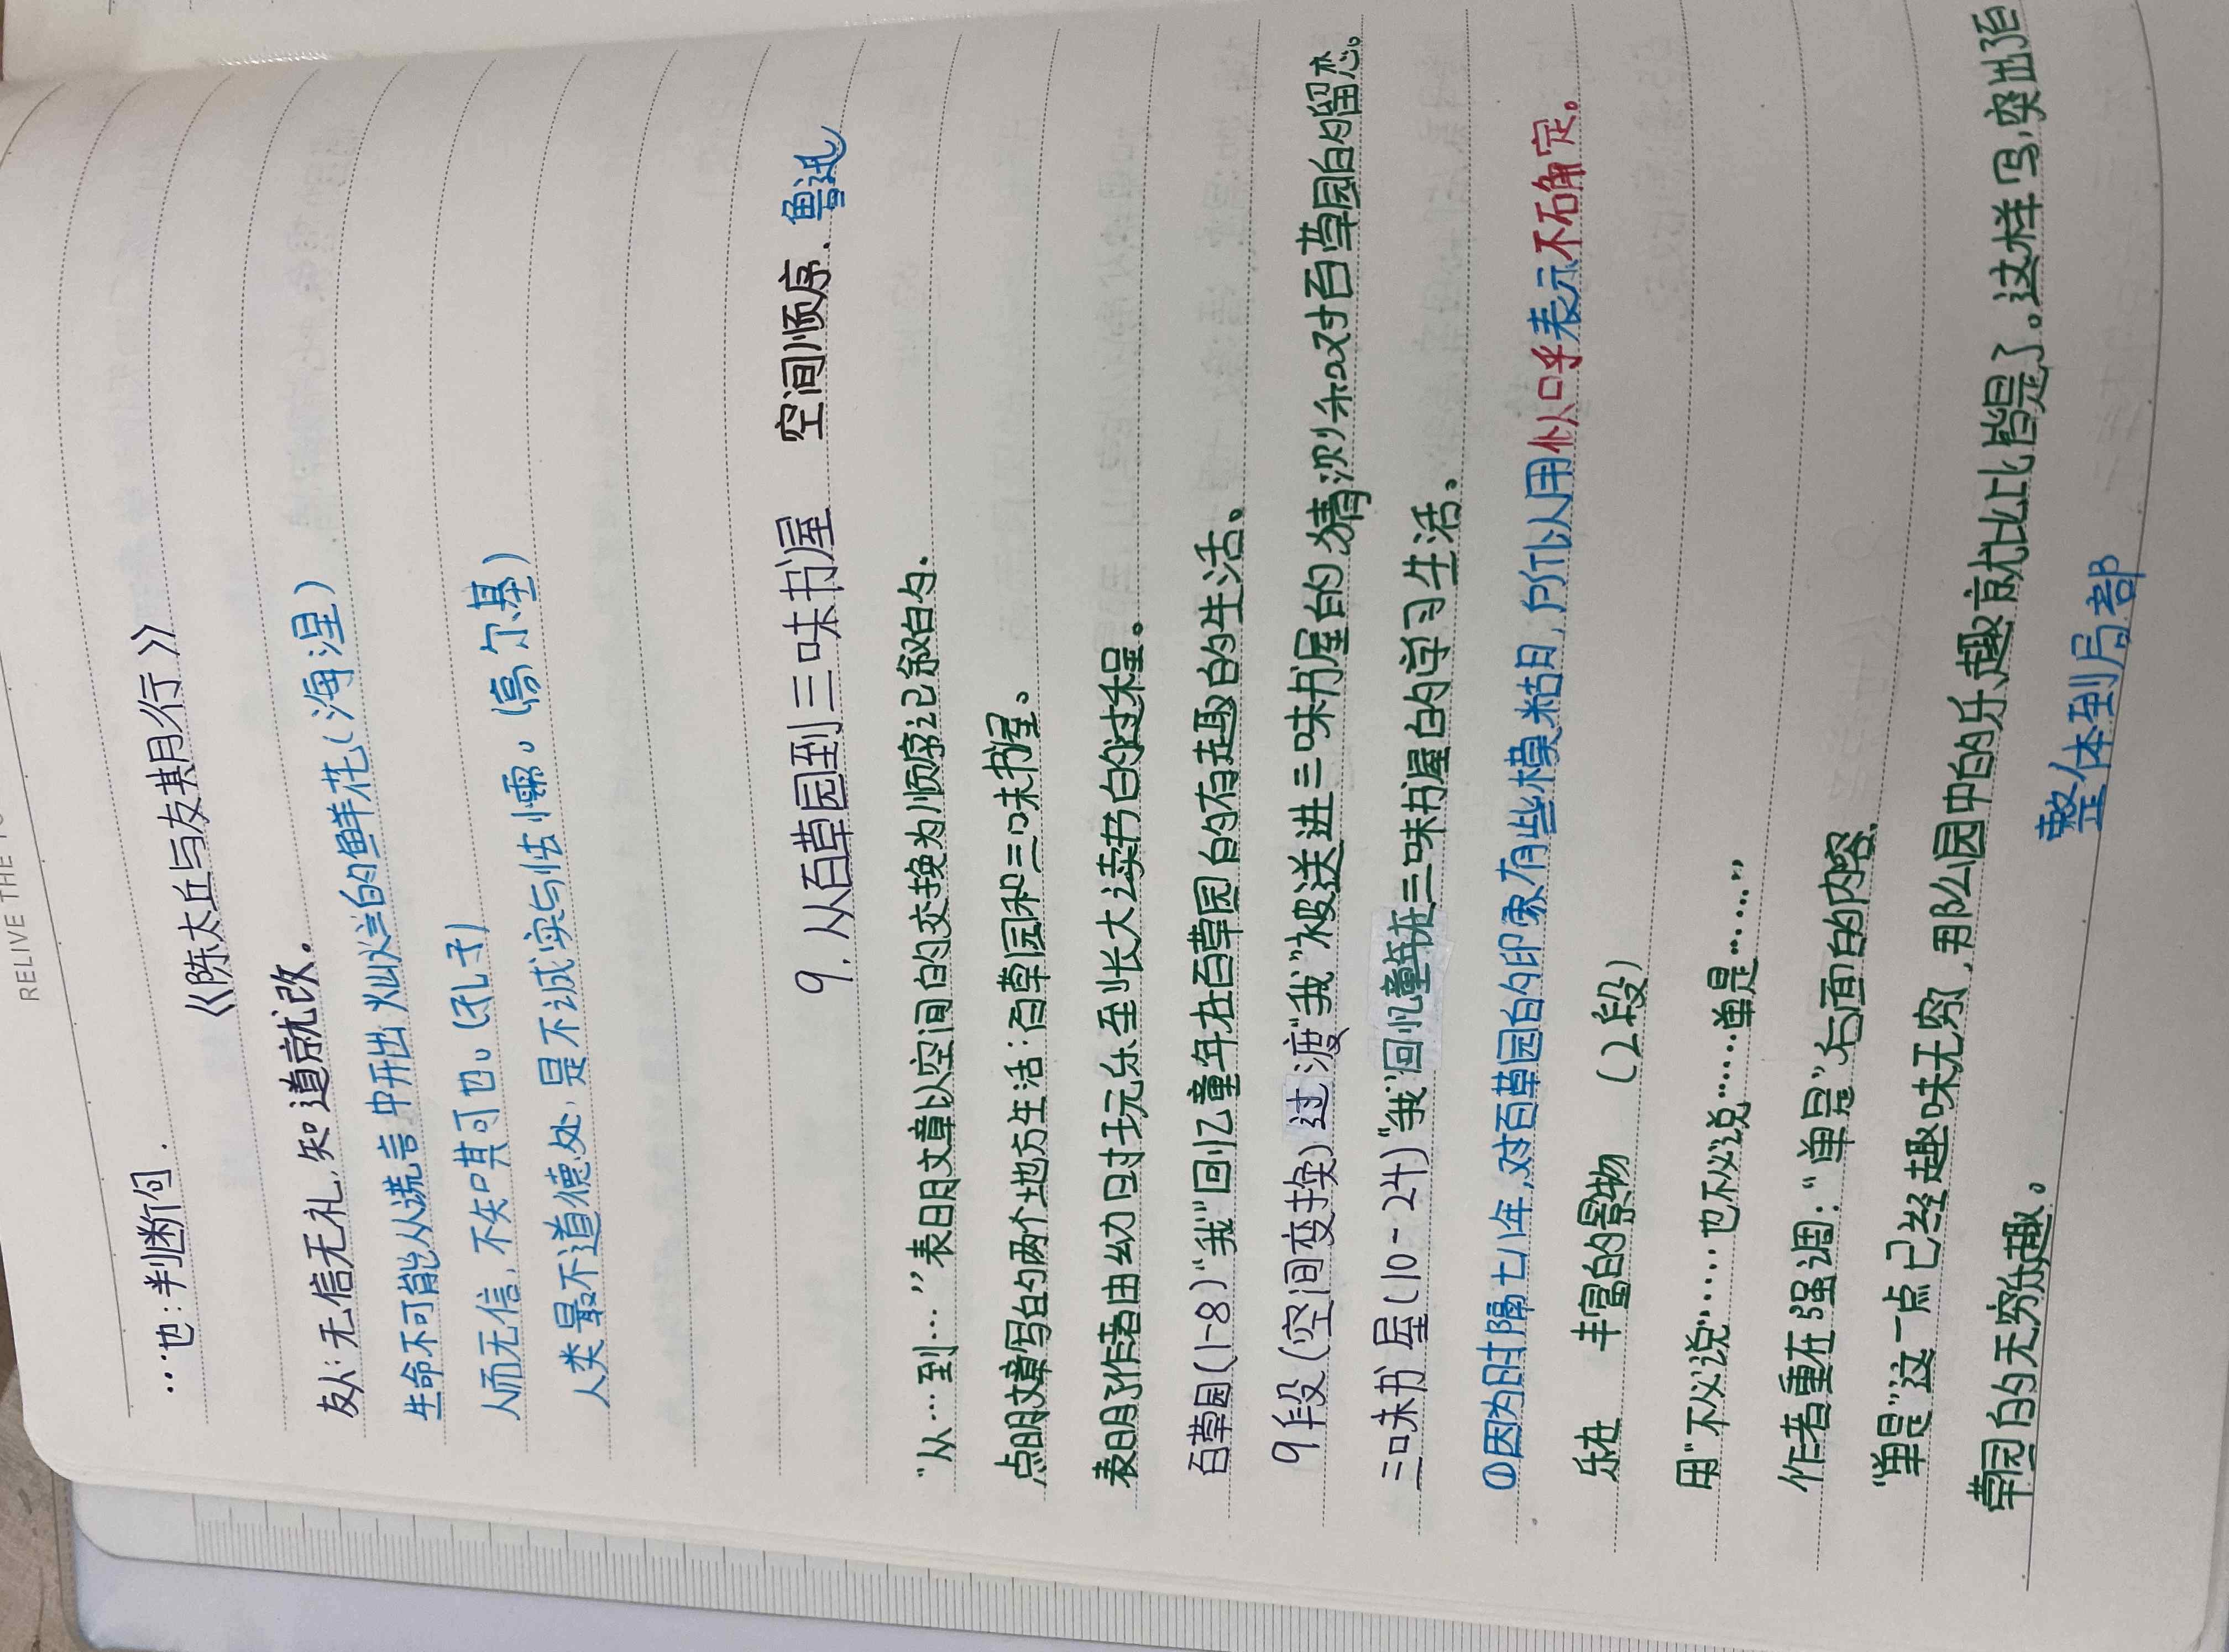 RELIVE THE
…也：判断句.
《陈太丘与友期行》
友人：无信无礼，知道就改.
生命不可能从谎言中开出灿烂的鲜花（海涅）
人而无信，不知其可也。（孔子）
人类最不道德处，是不诚实与怯懦。（高尔基）
9.从百草园到三味书屋 空间顺序.鲁迅
“从…到…”表明文章以空间的交换为顺序记叙的.
点明文章写的两个地方生活：百草园和三味书屋。
表明了作者由幼时玩乐至长大读书的过程。
百草园（1-8）“我”回忆童年在百草园的有趣的生活、
9段（空间变换）过渡“我”被送进三味书屋的猜测和对百草园的留恋。
三味书屋（10-24）“我”回忆童年在三味书屋的学习生活、
①因为时隔七八年，对百草园的印象有些模糊，所以用似乎表示不确定。
乐在 丰富的景物 （2段）
用“不必说”……也不必说……单是……”
作者重在强调：“单是”后面的内容.
“单是”这一点已经趣味无穷，那么园中的乐趣就比比皆是了。这样写，突出了百
草园的无穷乐趣。
整体到局部